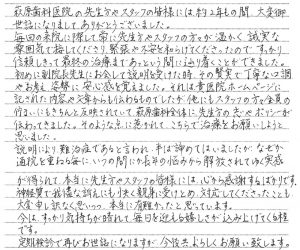 萩原歯科医院の先生方やスタッフの皆様には約2年もの間、大変御
世話になりまして、ありがとうございました。
毎回の来院に際して、常に先生方やスタッフの方々が温かく誠実な
雰囲気で接してくださり、緊張や不安を和らげてくださったので、すっかり
信頼しきって最終の治療まであっという間に辿り着くことができました。
初めに副院長先生にお会いして説明を受けた時、その賢実で丁寧な口調
やお考え、姿勢に安心感を覚えました。それは貴医院ホームページに
記された内容や文章からも伝わるものでしたが、他にもスタッフの方々全員の
佇まいにもきちんと反映されていて萩原歯科全体に先生方の志やポリシーが
伝わってきました。そのような点に惹かれて、こちらで治療をお願いしようと
思いました。
説明により難治症であると言われ、半ば諦めてはいましたが、なぜか
通院を重ねる毎に、いつの間にか長年の悩みから解放されてゆく実感
が得られて、本当に先生方やスタッフの皆様には、心から感謝するばかりです。
神経質で我儘な訴えにも快く親身に受けとめ、対応してくださったことも
大変申し訳なく思いつつ、本当に有難かったと思っています。
今は、すっかり気持ちが晴れて毎日を迎える嬉しさが込み上げてくる程
です。
定期検診で再びお世話になりますが、今後ともよろしくお願い致します。